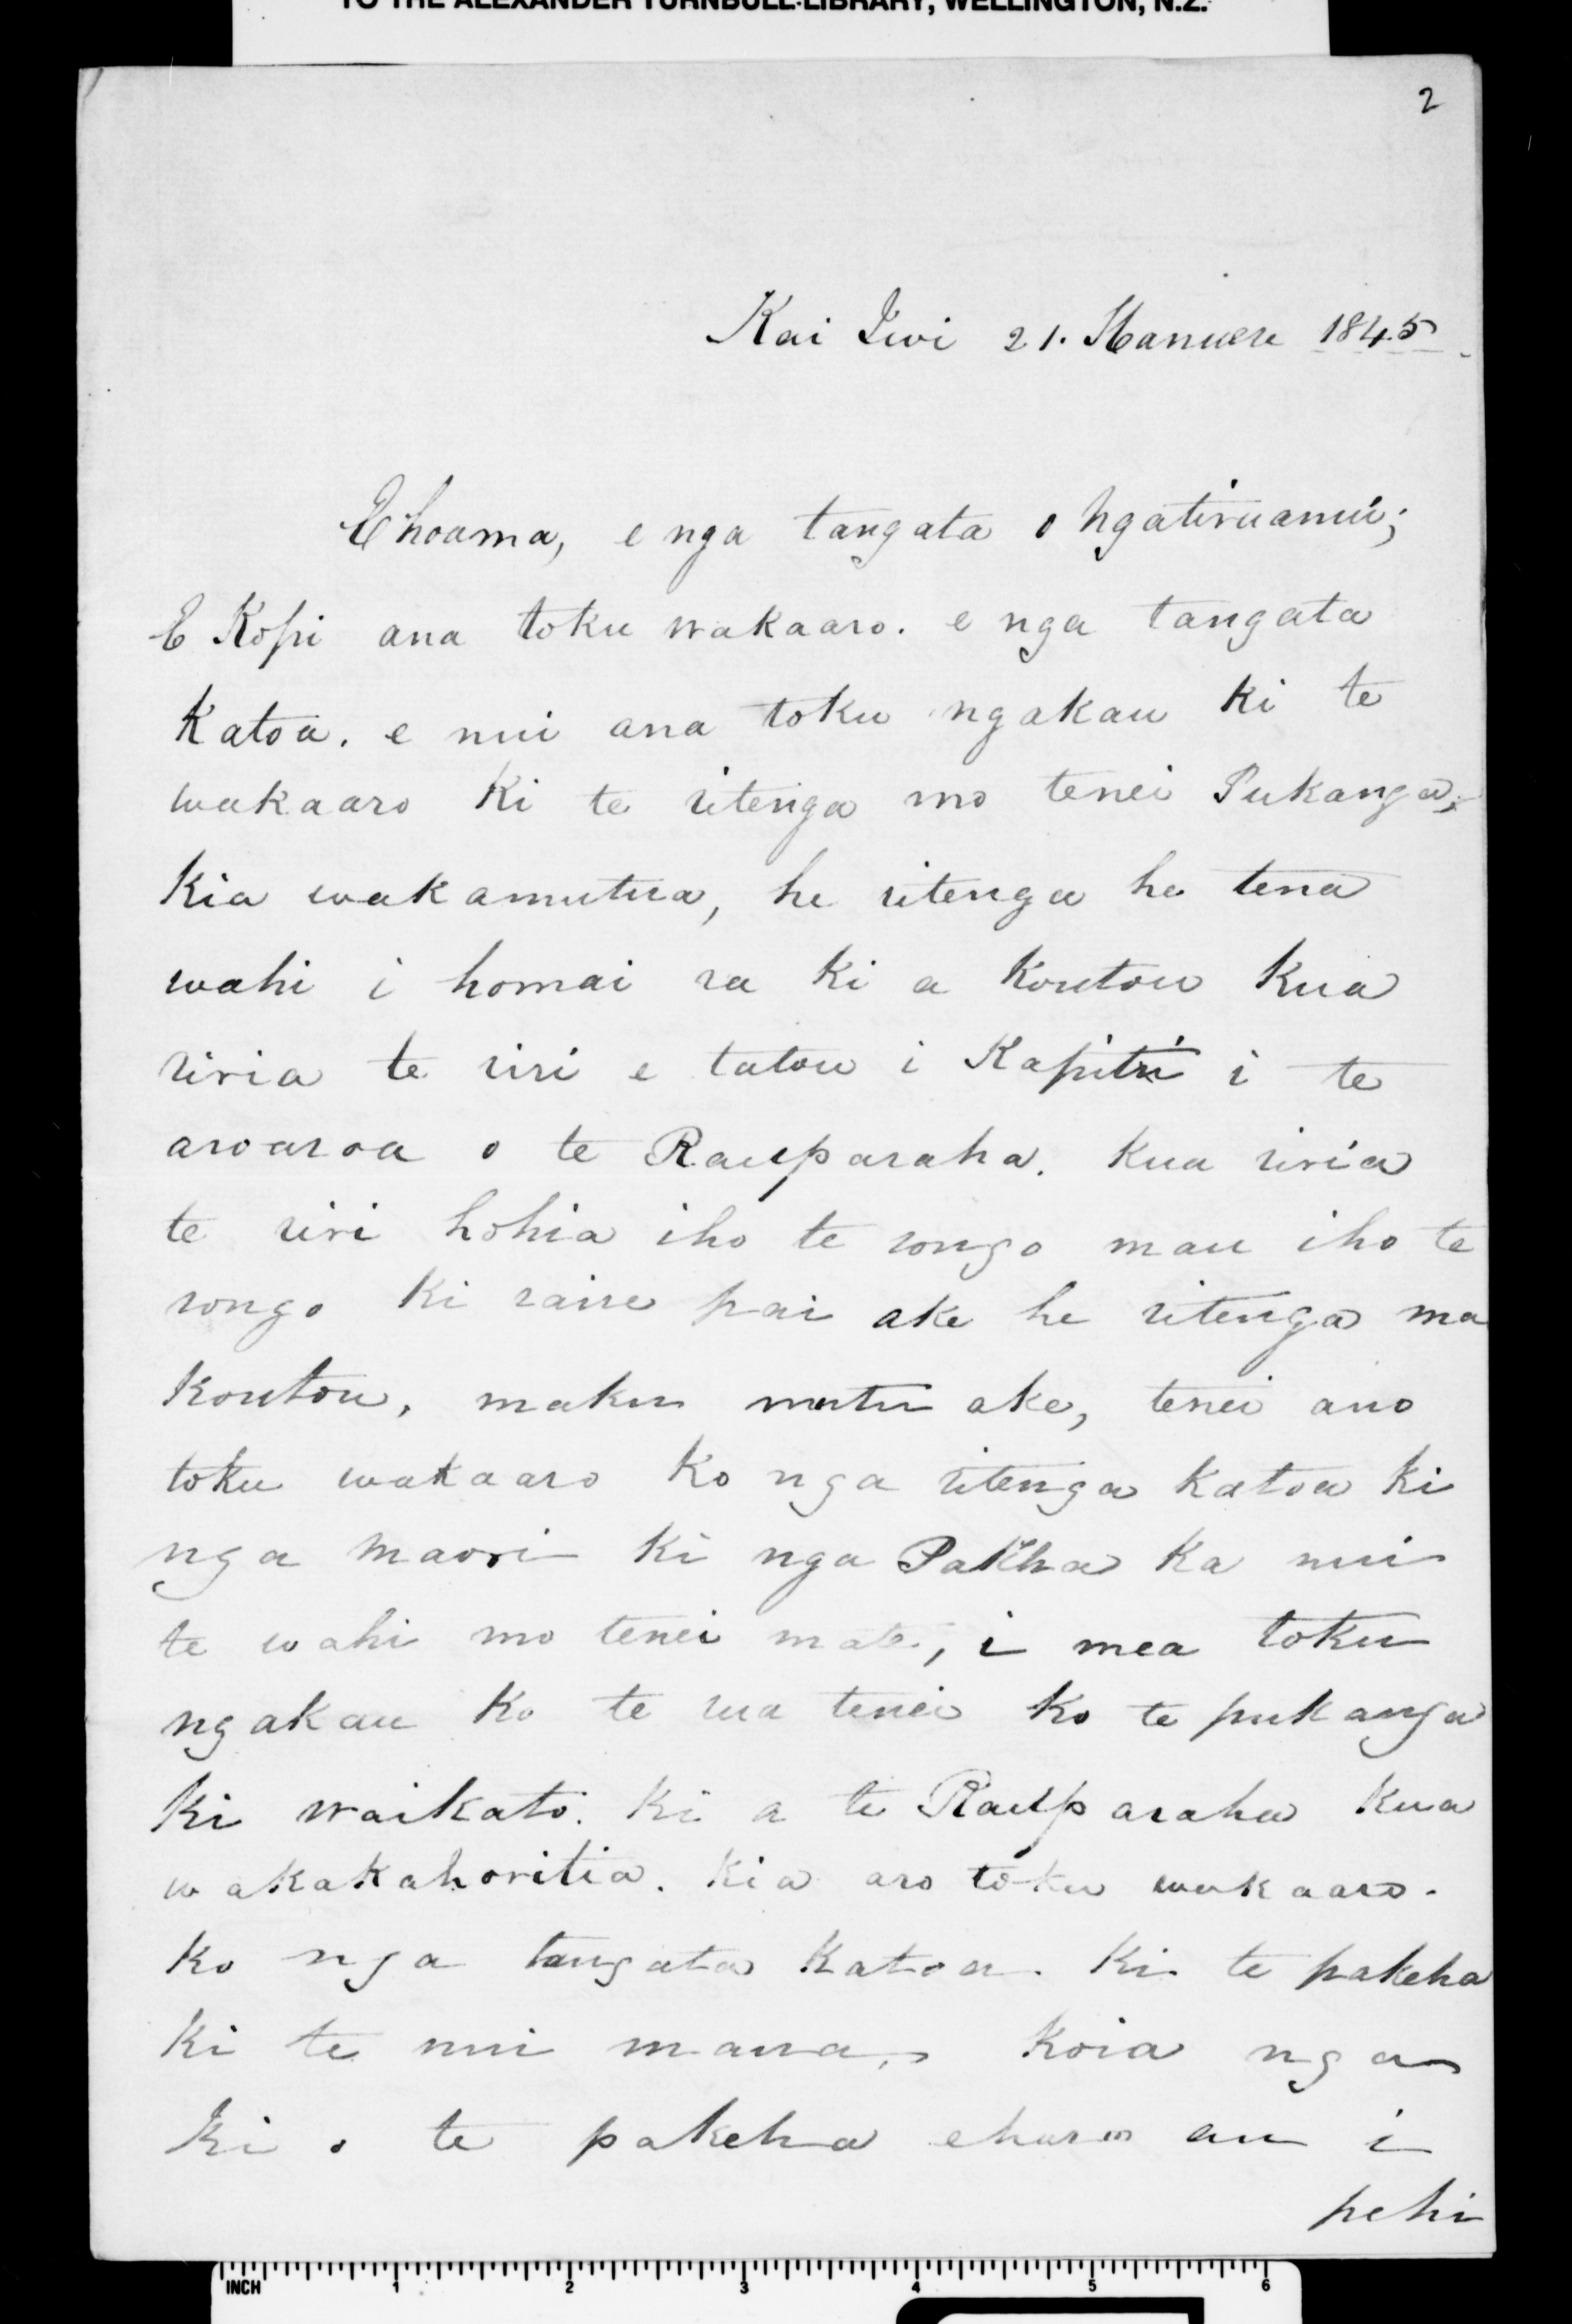 TO THE ALEXANDER TURNBULL LIBRARY, WELLINGTON, N.Z.
2
Kai Iwi 21. Hanuere 1845
E hoama, e nga tangata o Ngatiruanui;
E Kopi ana toku wakaaro. e nga tangata
Katoa. e nui ana toku ngakau ki te
wakaaro ki te ritenga mo tenei Pukanga,
Kia wakamutua, he ritenga he tena
wahi i homai ra ki a koutou kua
riria te riri e tatou i Kapiti i te
aroaroa o te Rauparaha. Kua riria
te riri hohia iho te rongo mau iho te
rongo ki raire pai ake he ritenga ma
Koutou, maku mutu ake, tenei ano
toku wakaaro ko nga ritenga katoa ki
nga maori ki nga Pakha ka nui
te wahi mo tenei mate, i mea toku
ngakau ko te rua tenei ko te pukanga
ki waikato. ki a te Rauparaha kua
wakakahoritia. kia aro toku wakaaro.
ko nga tangata katoa. ki te pakeha
ki te nui mana, koia nga
ki o te pakeha ehara au i
pehi
INCH 1 2 3 4 5 6